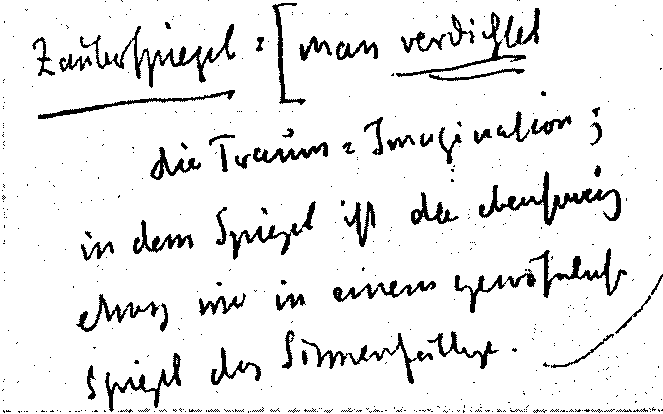 Zauberspiegel = [man verdichtet
die Traum=Imagination;
in dem Spiegel ist da ebensowenig
etwas wie in einem gewöhnlich
Spiegel das Sinnenfällige.